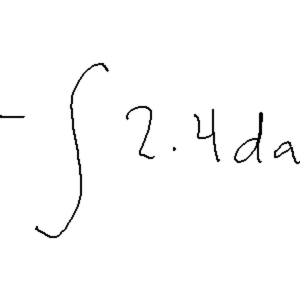 -∫2.4da